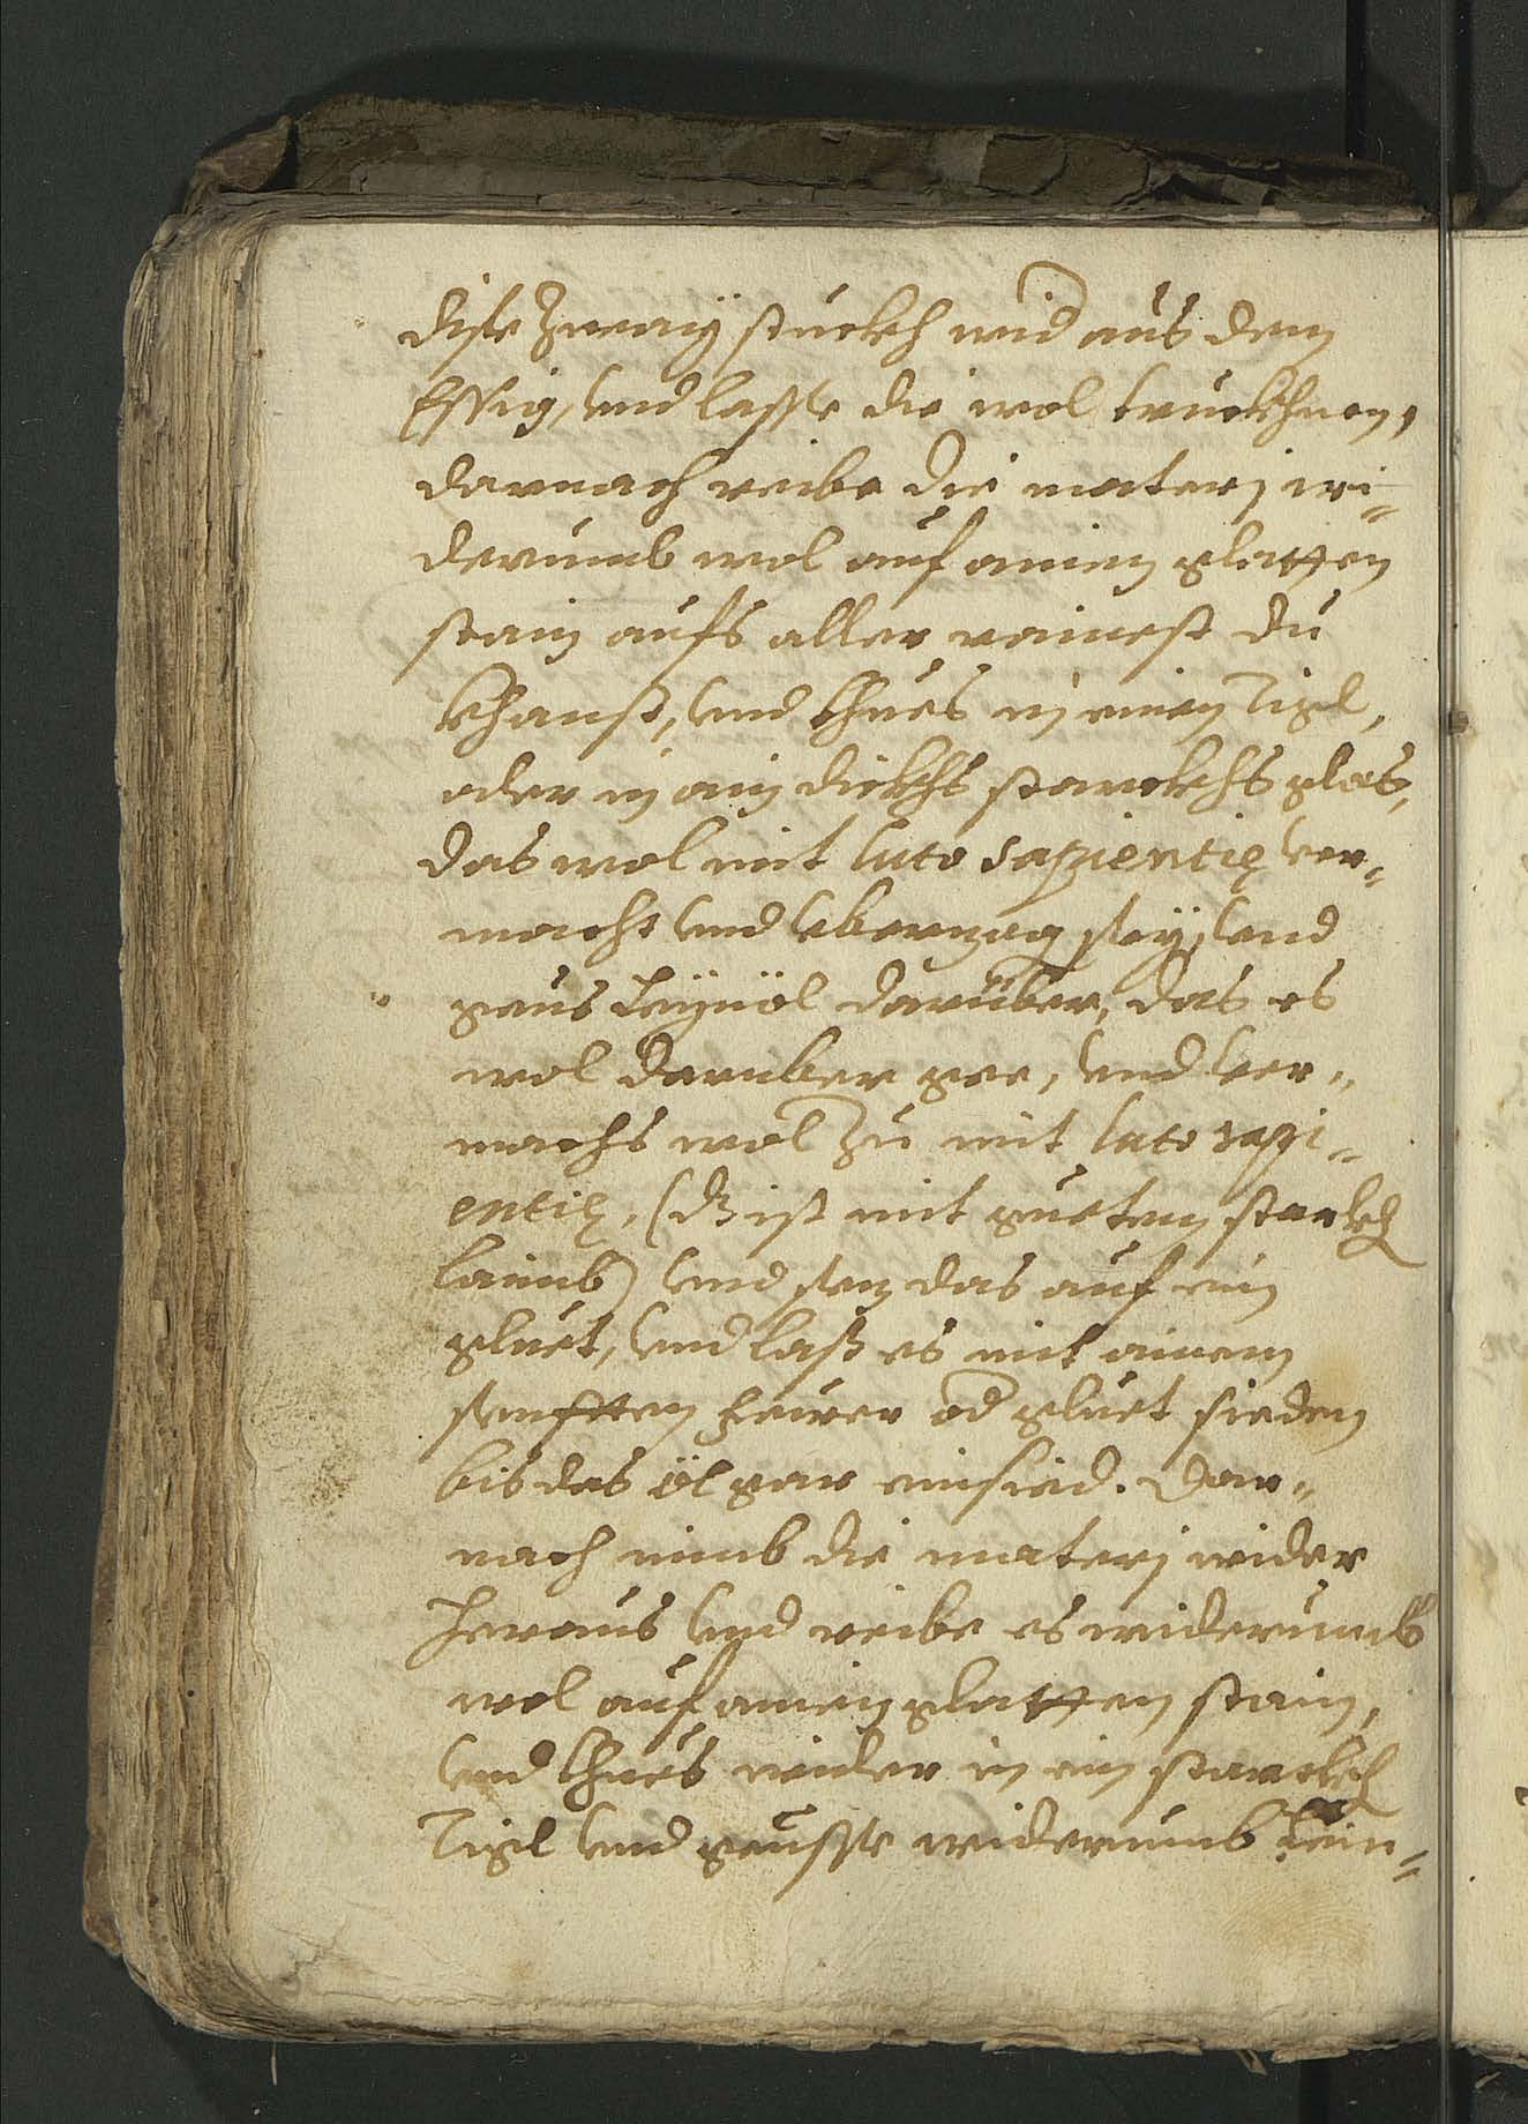 dise Zwaÿ stuckh wid aus dem
Essig, vnd lasse die wol truckhnen,
darnach reibe die materj wi=
derumb wol auf ainem glatten
stain aufs aller rainest du
khanst, vnd thues in einen Tigl,
oder in ain dickhs starckhs glas,
das wol mit luto sapientię ver=
macht vnd vberzog seÿ, vnd
geus Leÿnöl darüber, das es
wol daruber gee, vnd ver=
machs wol Zu mit luto sapi=
entię, (dz ist mit guetem starckh
laimb) vnd sez das auf ein
gluet, vnd laß es mit ainem
senfften feuer od gluet sieden
bis das öl gar einsied. Dar=
nach nimb die materj wider
heraus vnd reibe es widerumb
wol auf ainem glatten stain,
vnd thues wider in ein starckh
Tigl vnd geusse widerumb Lein=